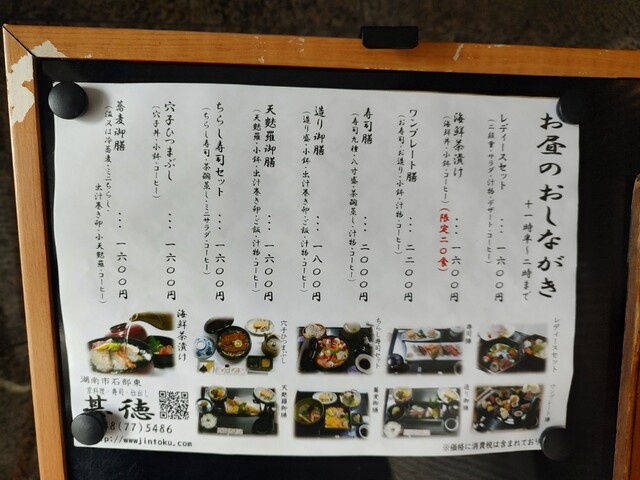 お昼のおしながき
十一時半～二時まで
レディースセット ・・・ 一六〇〇円
(二段重・サラダ・汁物・デザート・コーヒー)
海鮮茶漬け ・・・ 一六〇〇円
(海鮮丼・小鉢・コーヒー)(限定二〇食)
ワンプレート膳 ・・・ 二二〇〇円
(お寿司・お造り・小鉢・汁物・コーヒー)
寿司膳 ・・・ 二〇〇〇円
(寿司九種・八寸盛・茶碗蒸し・汁物・コーヒー)
造り御膳 ・・・ 一八〇〇円
(造り盛・小鉢・出汁巻き卵・ご飯・汁物・コーヒー)
天麩羅御膳 ・・・ 一六〇〇円
(天麩羅・小鉢・出汁巻き卵・ご飯・汁物・コーヒー)
ちらし寿司セット ・・・ 一六〇〇円
(ちらし寿司・茶碗蒸し・ミニサラダ・コーヒー)
穴子ひつまぶし ・・・ 一六〇〇円
(穴子丼・小鉢・コーヒー)
蕎麦御膳 ・・・ 一六〇〇円
(温又は冷蕎麦・ミニちらし・出汁巻き卵・小天麩羅・コーヒー)
レディースセット
寿司膳
ちらし寿司セット
穴子ひつまぶし
海鮮茶漬け
ワンプレート膳
造り御膳
蕎麦御膳
天麩羅御膳
湖南市石部東
京料理・寿司・仕出し
甚徳
8(77)5486
p://www.jintoku.com
※価格に消費税は含まれてお